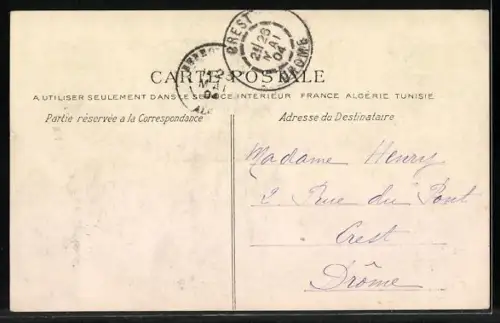 CREST
23
MAI
04
DROME
CARTE POSTALE
A UTILISER SEULEMENT DANS LE SERVICE INTÉRIEUR FRANCE ALGÉRIE TUNISIE
Partie réservée a la Correspondance
Adresse du Destinataire
Madame Henry
2 Rue du Pont
Crest
Drôme